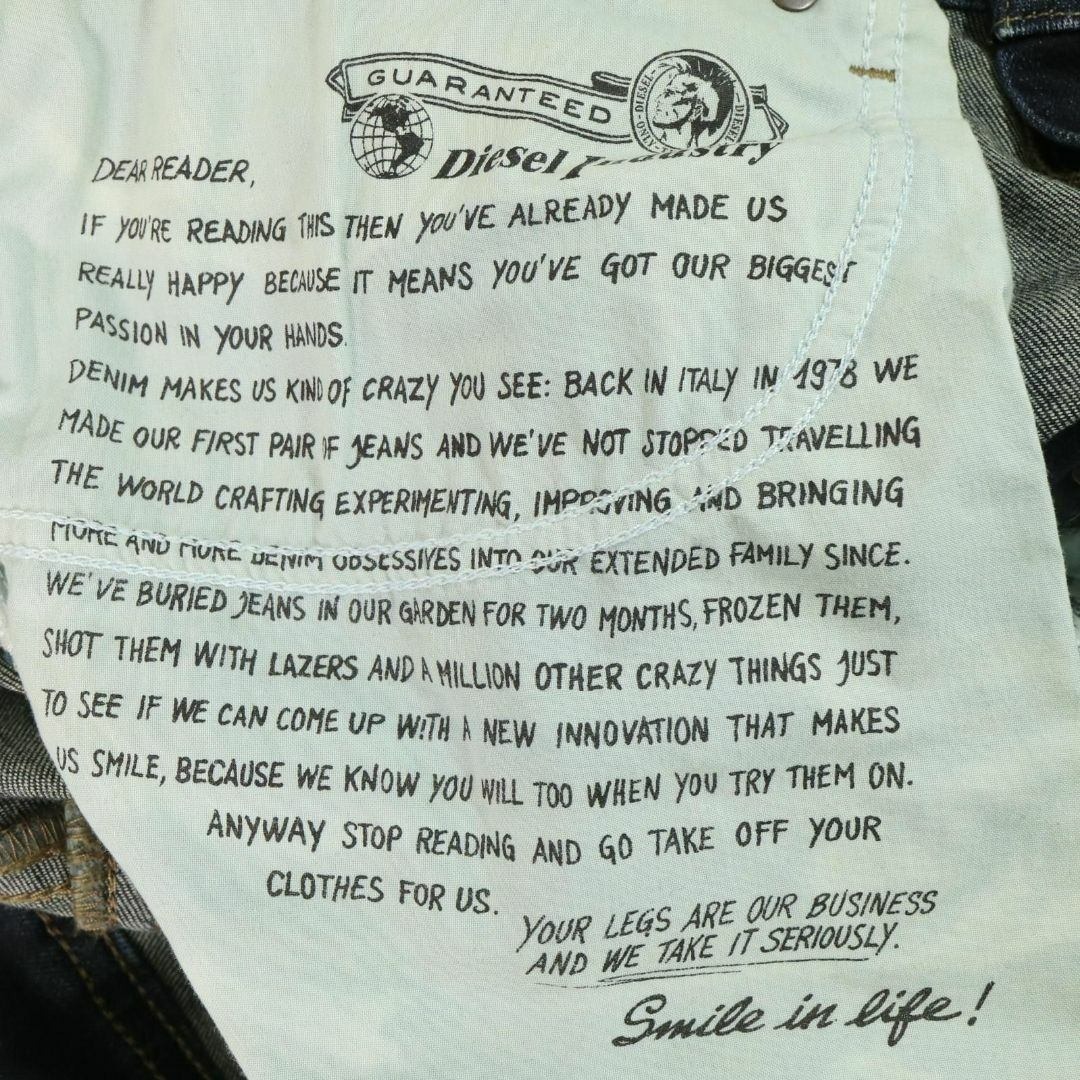 GUARANTEED
DIESEL DIESEL
Diesel Industry
DEAR READER,
IF YOU'RE READING THIS THEN YOU'VE ALREADY MADE US
REALLY HAPPY BECAUSE IT MEANS YOU'VE GOT OUR BIGGEST
PASSION IN YOUR HANDS.
DENIM MAKES US KIND OF CRAZY YOU SEE: BACK IN ITALY IN 1978 WE
MADE OUR FIRST PAIR IF JEANS AND WE'VE NOT STOPPED TRAVELLING
THE WORLD CRAFTING EXPERIMENTING, IMPROVING AND BRINGING
MORE AND MORE DENIM OBSESSIVES INTO OUR EXTENDED FAMILY SINCE.
WE'VE BURIED JEANS IN OUR GARDEN FOR TWO MONTHS, FROZEN THEM,
SHOT THEM WITH LAZERS AND A MILLION OTHER CRAZY THINGS JUST
TO SEE IF WE CAN COME UP WITH A NEW INNOVATION THAT MAKES
US SMILE, BECAUSE WE KNOW YOU WILL TOO WHEN YOU TRY THEM ON.
ANYWAY STOP READING AND GO TAKE OFF YOUR
CLOTHES FOR US.
YOUR LEGS ARE OUR BUSINESS
AND WE TAKE IT SERIOUSLY.
Smile in life!